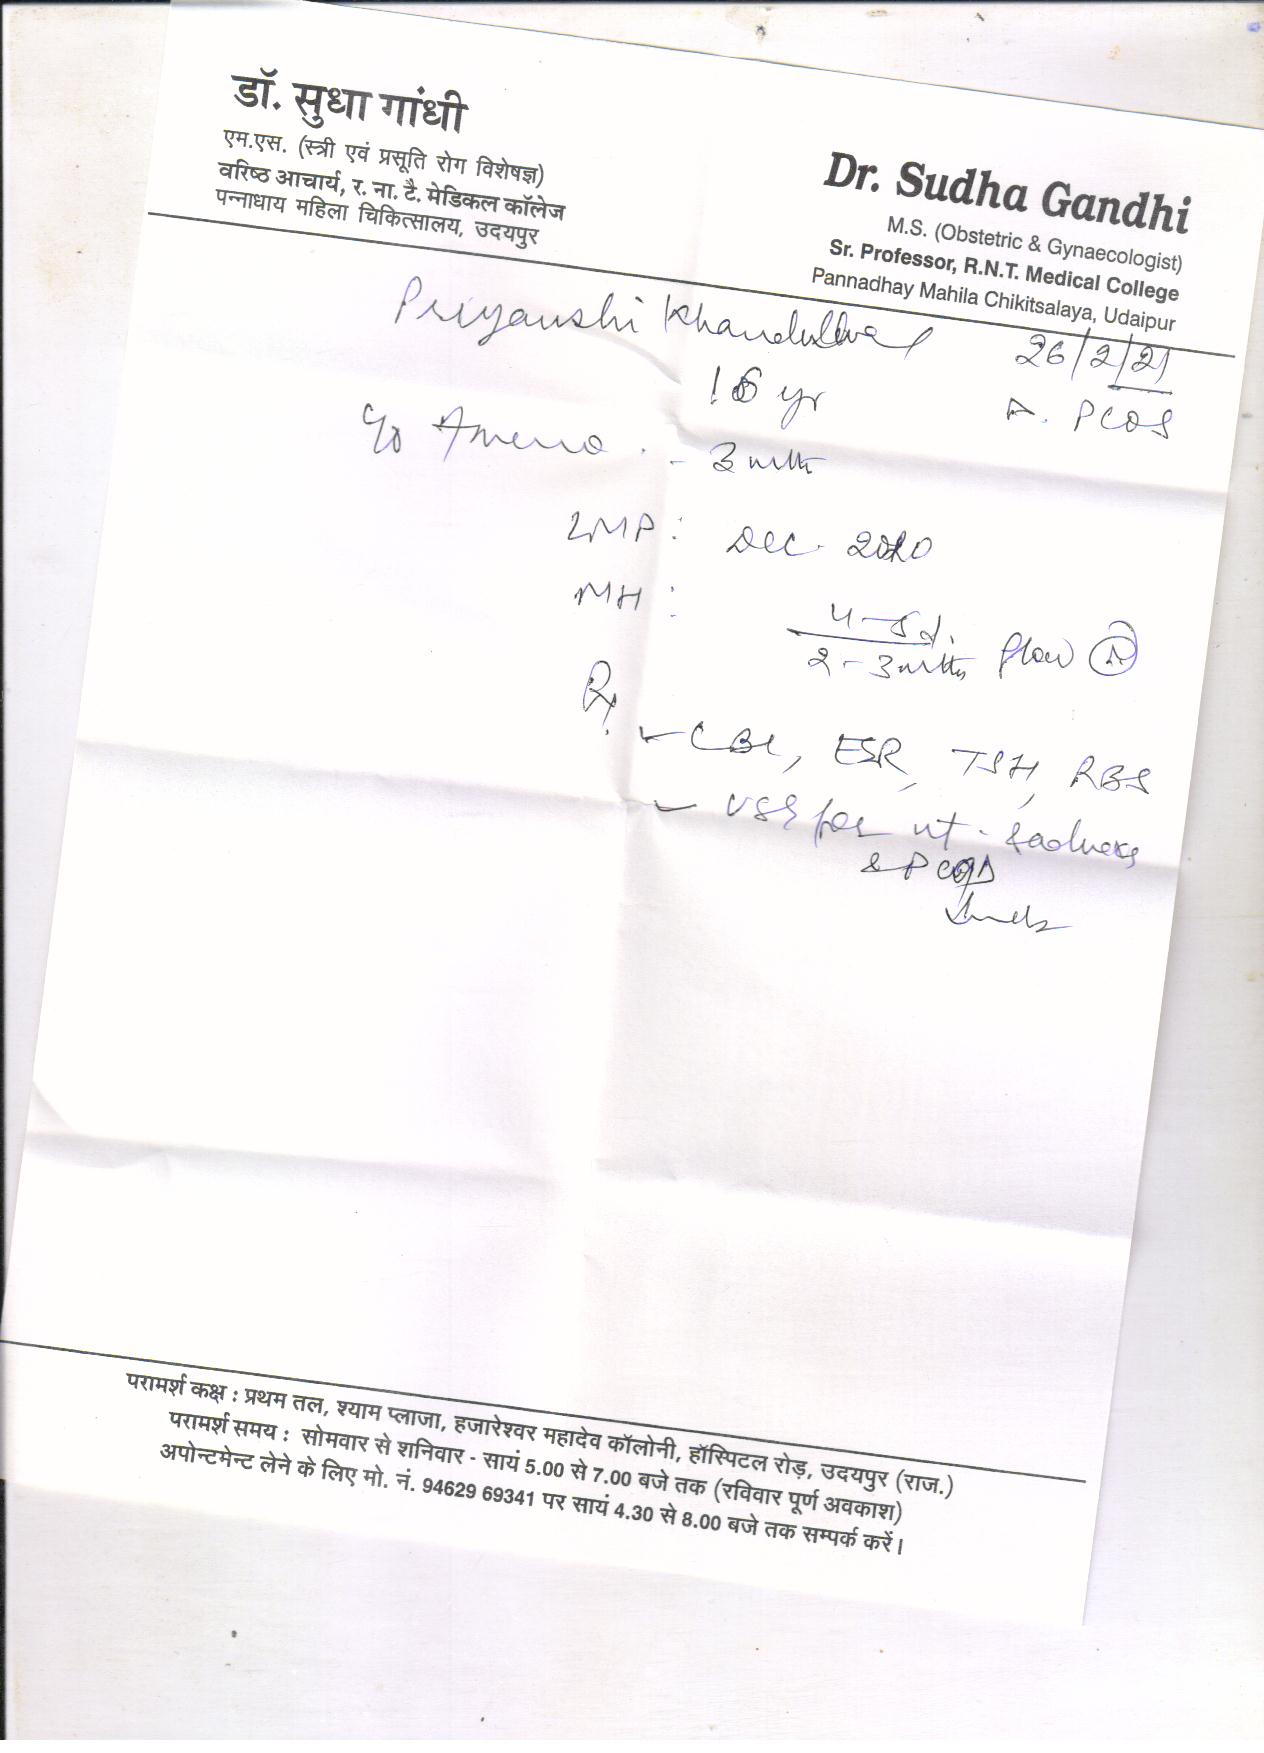 डॉ. सुधा गांधी
एम.एस. (स्त्री एवं प्रसूति रोग विशेषज्ञ)
वरिष्ठ आचार्य, र. ना. टै. मेडिकल कॉलेज
पन्नाधाय महिला चिकित्सालय, उदयपुर
Dr. Sudha Gandhi
M.S. (Obstetric & Gynaecologist)
Sr. Professor, R.N.T. Medical College
Pannadhay Mahila Chikitsalaya, Udaipur
Priyanshi
26/2/21
yr
PCOS
3 mth
LMP: Dec. 2020
MH: 4-5d.
2-3 mths flow
Rx
CBC, ESR, TSH, RBS
USG for ut.
& PCOD
परामर्श कक्ष : प्रथम तल, श्याम प्लाजा, हजारेश्वर महादेव कॉलोनी, हॉस्पिटल रोड़, उदयपुर (राज.)
परामर्श समय : सोमवार से शनिवार - सायं 5.00 से 7.00 बजे तक (रविवार पूर्ण अवकाश)
अपोन्टमेन्ट लेने के लिए मो. नं. 94629 69341 पर सायं 4.30 से 8.00 बजे तक सम्पर्क करें।